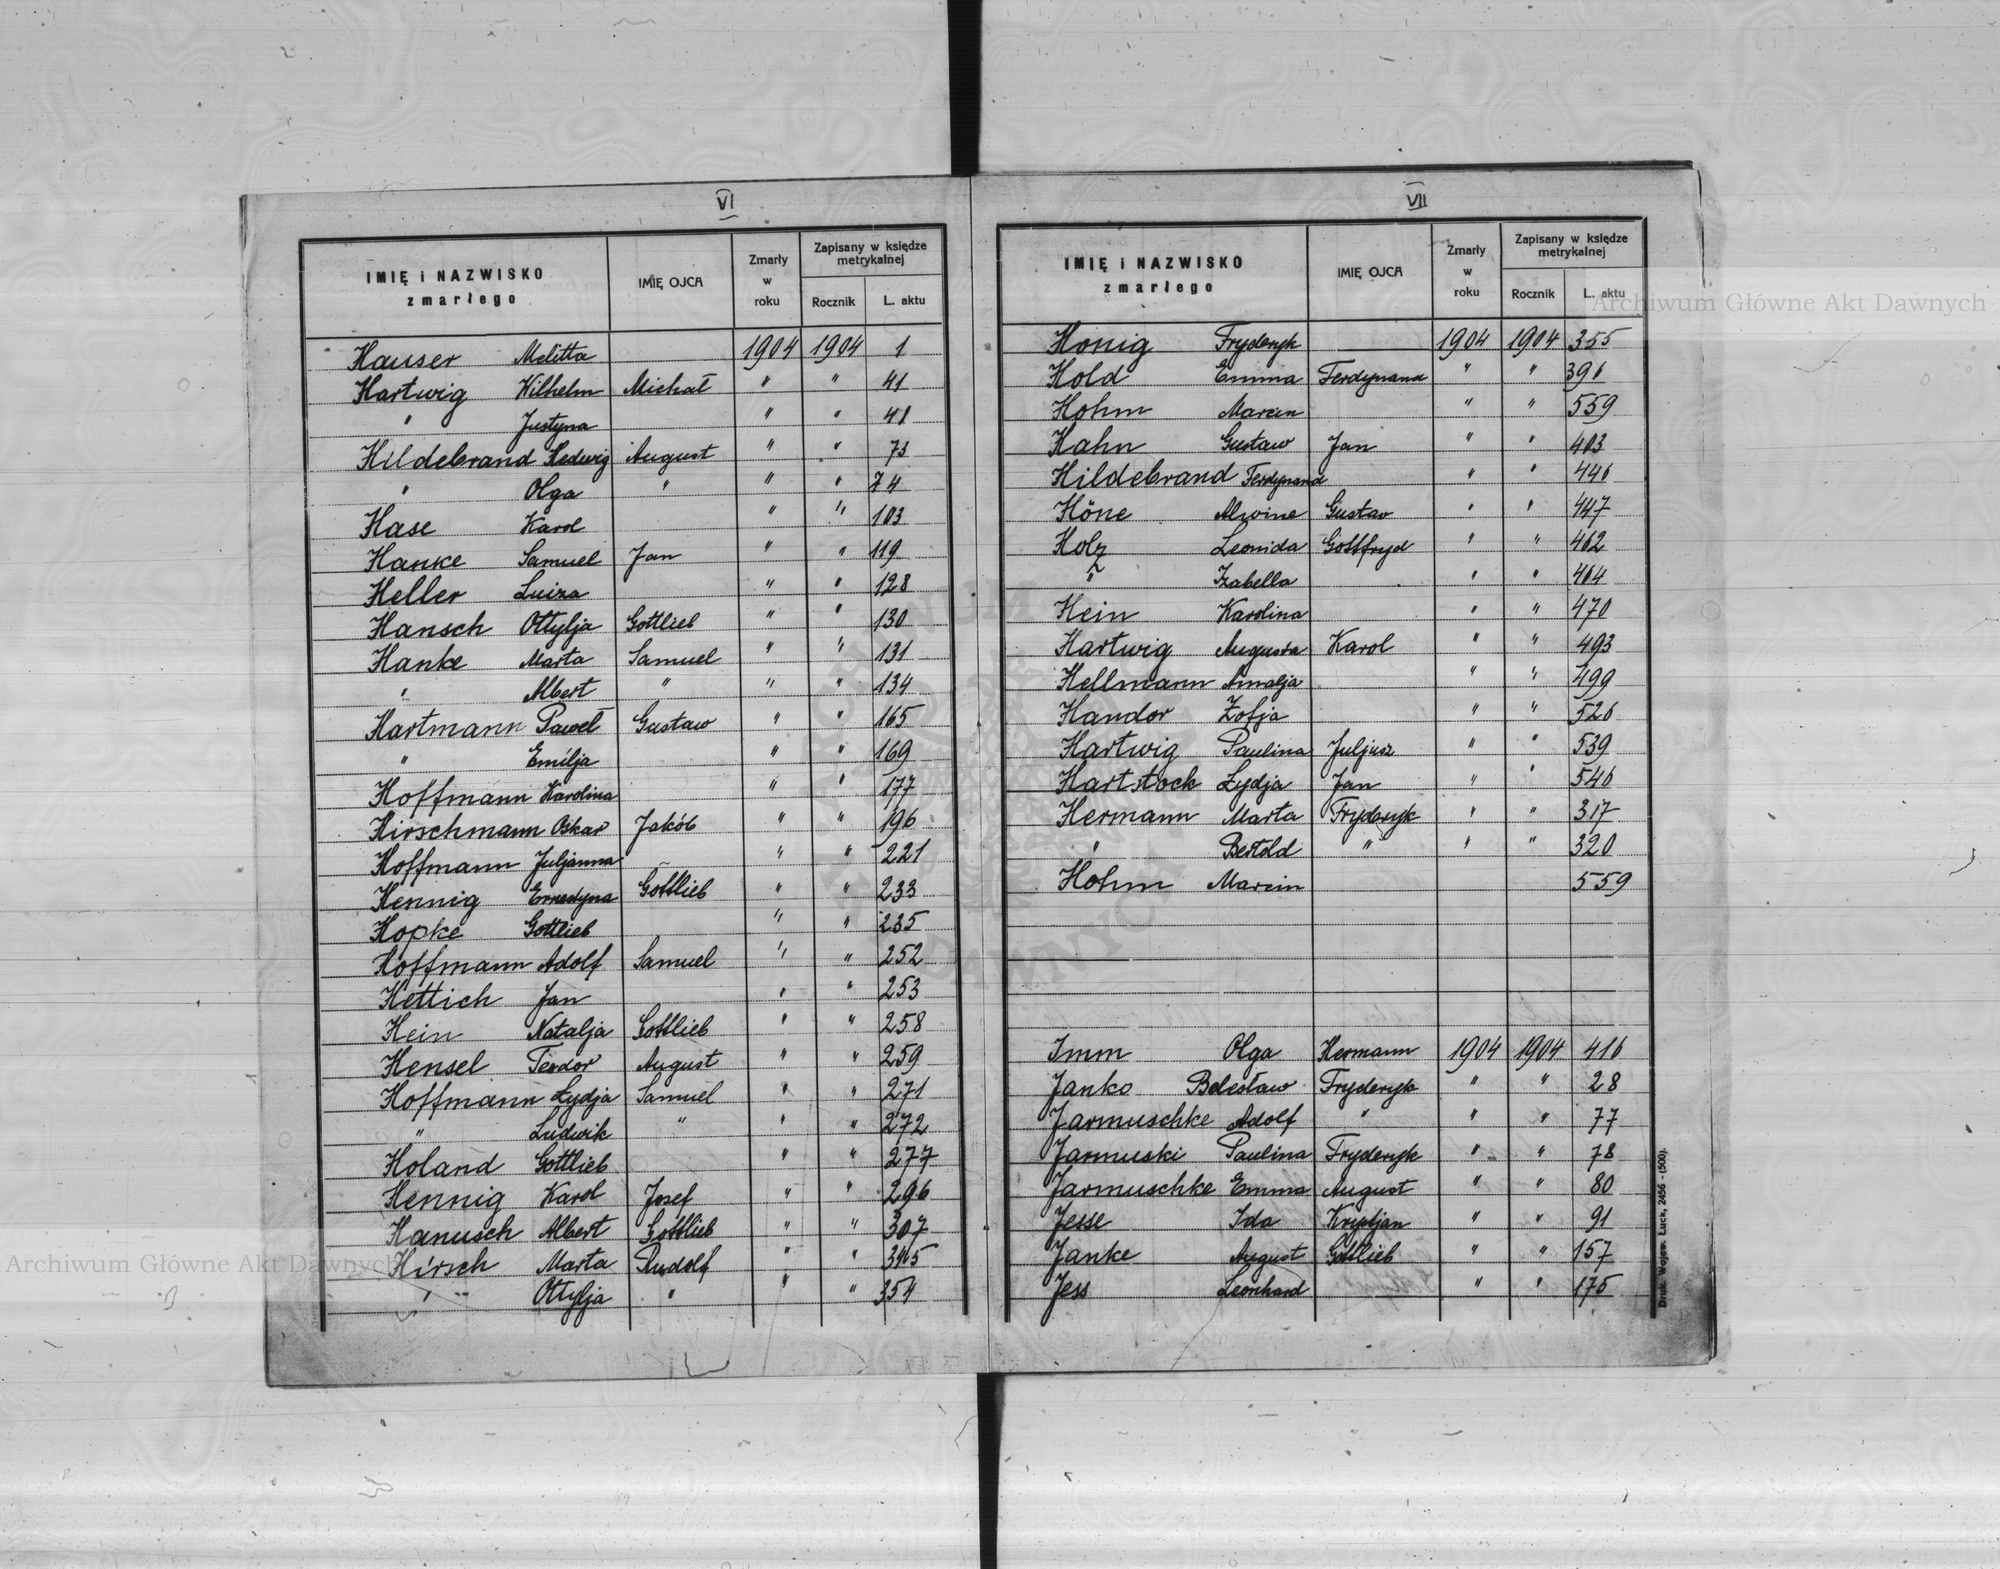 VI
IMIĘ i NAZWISKO zmarłego IMIĘ OJCA Zmarły w roku Zapisany w księdze metrykalnej Rocznik L. aktu
Hauser Melitta 1904 1904 1
Hartwig Wilhelm Michał " " 41
" Justyna " " 48
Hildebrand Hedwig August " " 73
" Olga " " " 74
Hase Karol " " 103
Hanke Samuel Jan " " 119
Heller Luiza " " 128
Hansch Ottylja Gottlieb " " 130
Hanke Marta Samuel " " 131
" Albert " " " 134
Hartmann Paweł Gustaw " " 165
" Emilja " " 169
Hoffmann Karolina " " 177
Hirschmann Oskar Jakób " " 196
Hoffmann Juljanna " " 221
Hennig Ernestyna Gottlieb " " 233
Hopke Gottlieb " " 235
Hoffmann Adolf Samuel " " 252
Hettich Jan " " 253
Hein Natalja Gottlieb " " 258
Hensel Teodor August " " 259
Hoffmann Lydja Samuel " " 271
" Ludwik " " " 272
Holand Gottlieb " " 277
Hennig Karol Josef " " 296
Hanusch Albert Gottlieb " " 307
Hirsch Marta Rudolf " "
" Ottylja " " " 354
VII
IMIĘ i NAZWISKO zmarłego IMIĘ OJCA Zmarły w roku Zapisany w księdze metrykalnej Rocznik L. aktu
Honig Fryderyk 1904 1904 355
Hold Emma Ferdynand " " 396
Hohm Marcin " " 559
Hahn Gustaw Jan " " 403
Hildebrand Ferdynand " " 446
Höne Alwine Gustav " " 447
Holz Leonida Gottfryd " " 462
" Izabella " " 464
Hein Karolina " " 470
Hartwig Augusta Karol " " 493
Hellmann Amalja " " 499
Handor Zofja " " 526
Hartwig Paulina Juljusz " " 539
Hartstock Lydja Jan " " 546
Hermann Marta Fryderyk " " 317
" Bertold " " " 320
Hohm Marcin 559
Imm Olga Hermann 1904 1904 416
Janko Bolesław Fryderyk " " 28
Jarmuschke Adolf " " " 77
Jarmuski Paulina Fryderyk " " 78
Jarmuschke Emma August " " 80
Jesse Ida Krystjan " " 91
Janke August Gottlieb " " 157
Jess Leonhard " " 175
Druk. Wojew. Łuck, 2456 - (500).
Archiwum Główne Akt Dawnych
Archiwum Główne Akt Dawnych